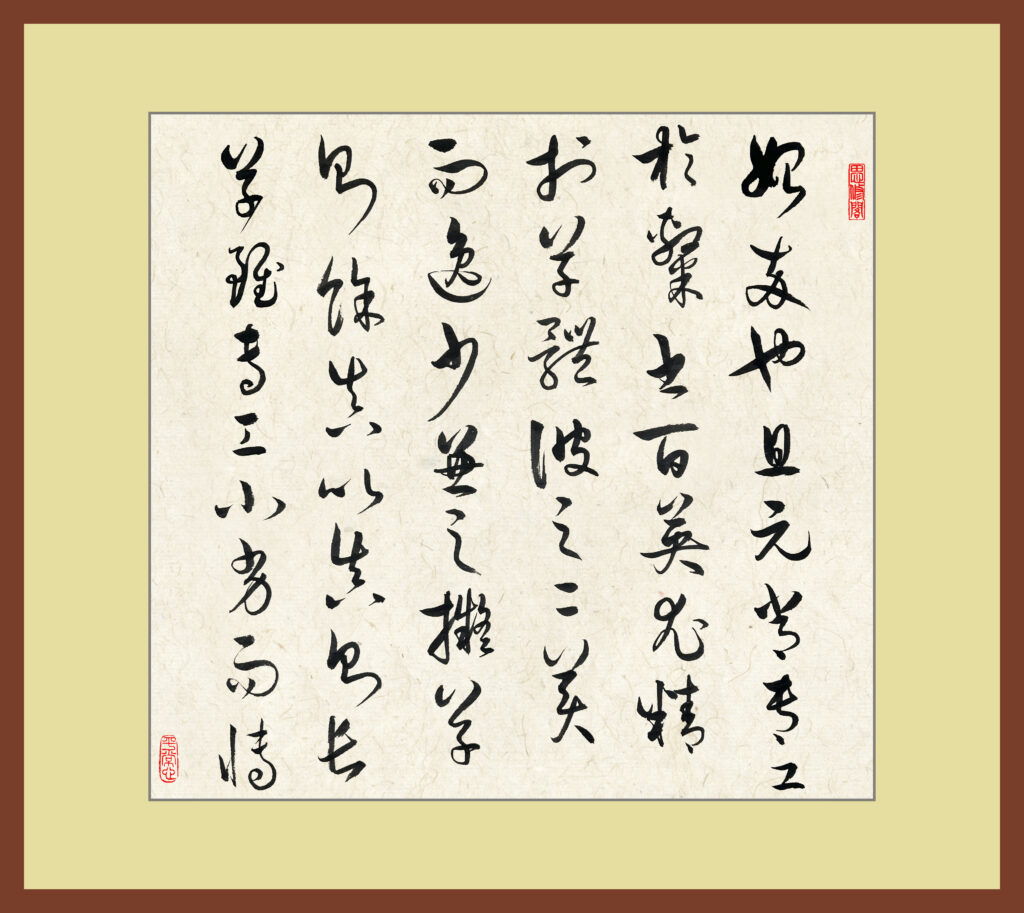 始卒也且元常專工
於隸書百英尤精
於草體彼之二美
而逸少兼之擬草
則餘真比真則長
草雖專工小劣而博
思修閣
平常心